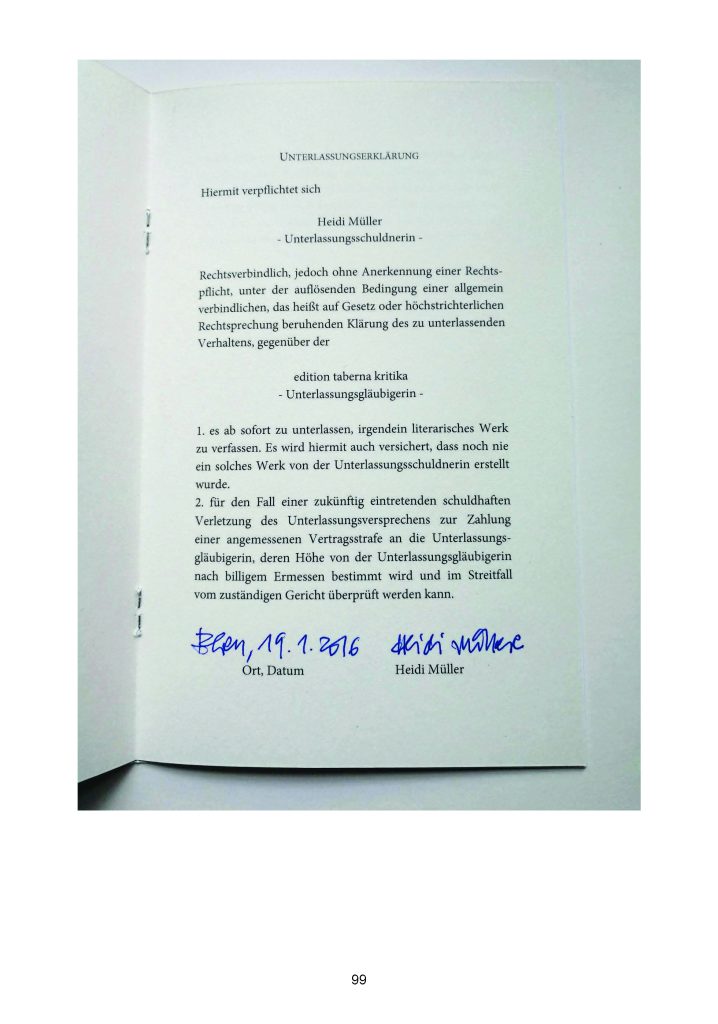 UNTERLASSUNGSERKLÄRUNG
Hiermit verpflichtet sich
Heidi Müller
- Unterlassungsschuldnerin -
Rechtsverbindlich, jedoch ohne Anerkennung einer Rechts-
pflicht, unter der auflösenden Bedingung einer allgemein
verbindlichen, das heißt auf Gesetz oder höchstrichterlichen
Rechtsprechung beruhenden Klärung des zu unterlassenden
Verhaltens, gegenüber der
edition taberna kritika
- Unterlassungsgläubigerin -
1. es ab sofort zu unterlassen, irgendein literarisches Werk
zu verfassen. Es wird hiermit auch versichert, dass noch nie
ein solches Werk von der Unterlassungsschuldnerin erstellt
wurde.
2. für den Fall einer zukünftig eintretenden schuldhaften
Verletzung des Unterlassungsversprechens zur Zahlung
einer angemessenen Vertragsstrafe an die Unterlassungs-
gläubigerin, deren Höhe von der Unterlassungsgläubigerin
nach billigem Ermessen bestimmt wird und im Streitfall
vom zuständigen Gericht überprüft werden kann.
Bern, 19.1.2016 Heidi Müller
Ort, Datum Heidi Müller
99